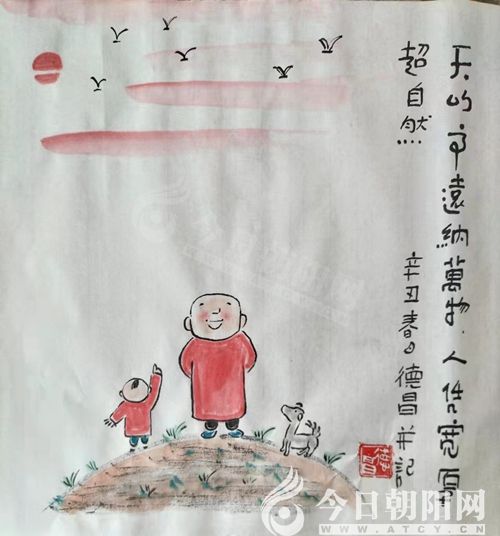 天遠納萬物，人寬厚
超自然
辛丑春日德昌并記
德昌
今日朝阳网
WWW.ATCY.CN